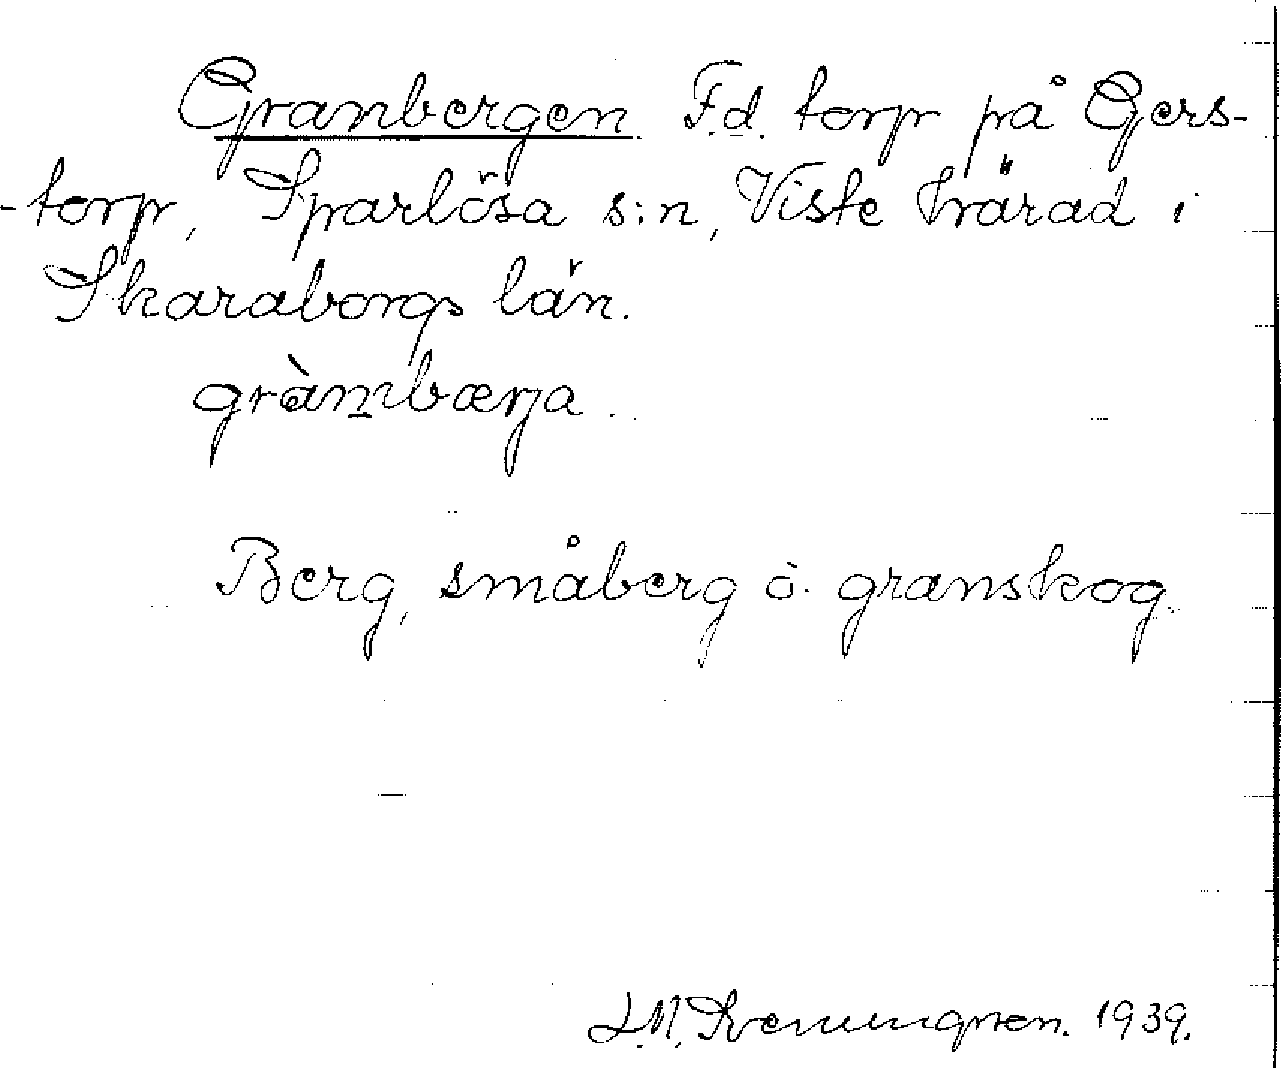 Granbergen F.d. torp på Gers-
-torp, Sparlösa s:n, Viste härad i
Skaraborgs län.
gràmbærja
Berg, småberg o. granskog.
J.N. Svenungsson. 1939.